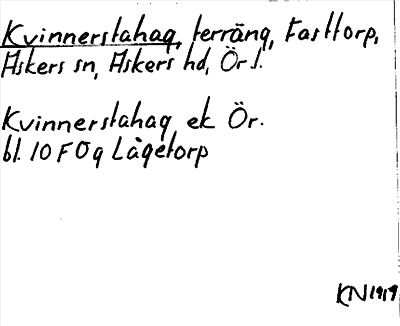 Kvinnerstahag, terräng, Fasttorp,
Askers sn, Askers hd, Ör l.
Kvinnerstahag ek Ör.
bl. 10 F 0 g Lågetorp
KN 1919